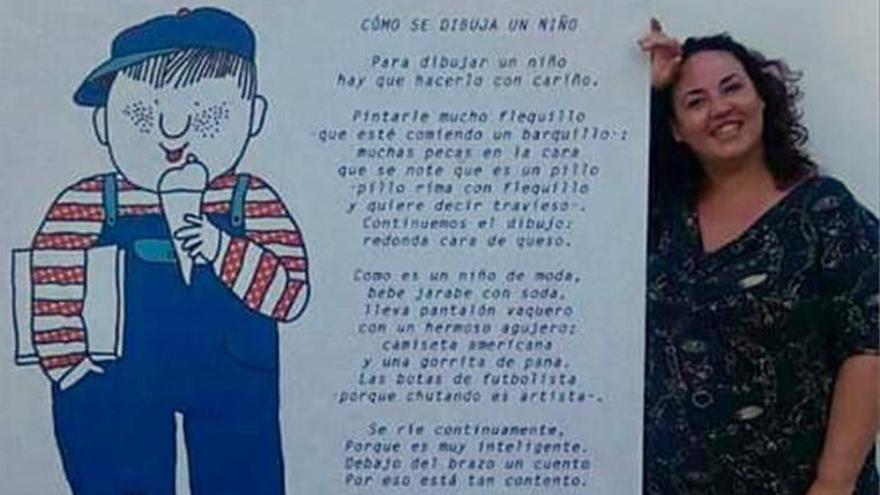 CÓMO SE DIBUJA UN NIÑO
Para dibujar un niño
hay que hacerlo con cariño.
Pintarle mucho flequillo
-que esté comiendo un barquillo-;
muchas pecas en la cara
que se note que es un pillo
-pillo rima con flequillo
y quiere decir travieso-.
Continuemos el dibujo:
redonda cara de queso.
Como es un niño de moda,
bebe jarabe con soda,
lleva pantalón vaquero
con un hermoso agujero;
camiseta americana
y una gorrita de pana.
Las botas de futbolista
-porque chutando es artista-.
Se ríe continuamente,
Porque es muy inteligente.
Debajo del brazo un cuento
Por eso está tan contento.